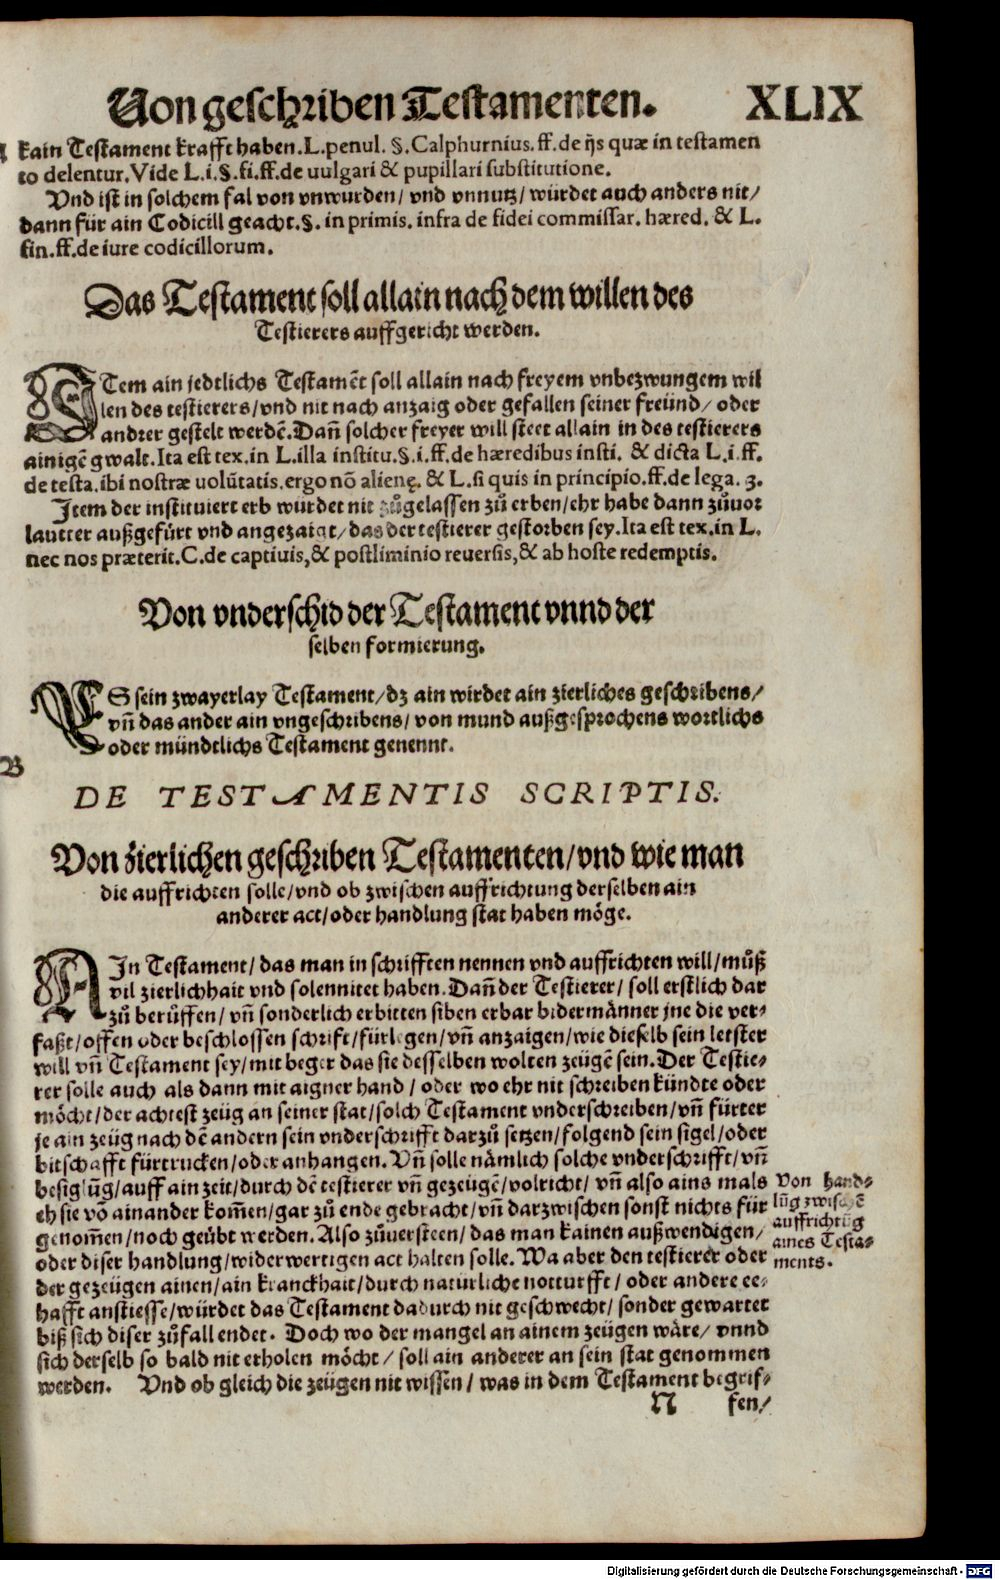 Von geschriben Testamenten. XLIX
kain Testament krafft haben. L. penul. §. Calphurnius. ff. de ijs quæ in testamen
to delentur. Vide L. i. §. fi. ff. de uulgari & pupillari substitutione.
Vnd ist in solchem fal von vnwurden / vnd vnnutz / würdet auch anders nit /
dann für ain Codicill geacht. §. in primis. infra de fidei commissar. hæred. & L.
fin. ff. de iure codicillorum.
Das Testament soll allain nach dem willen des
Testierers auffgericht werden.
ITem ain jedtlichs Testamēt soll allain nach freyem vnbezwungem wil
len des testierers / vnd nit nach anzaig oder gefallen seiner freünd / oder
andrer gestelt werdē. Dañ solcher freyer will steet allain in des testierers
ainigē gwalt. Ita est tex. in L. illa institu. §. i. ff. de hæredibus insti. & dicta L. i. ff.
de testa. ibi nostræ uolūtatis. ergo nō alienę. & L. si quis in principio. ff. de lega. 3.
Item der instituiert erb würdet nit zůgelassen zů erben / ehr habe dann zůuor
lautter außgefürt vnd angezaigt / das der testierer gestorben sey. Ita est tex. in L.
nec nos præterit. C. de captiuis, & postliminio reuersis, & ab hoste redemptis.
Von vnderschid der Testament vnnd der
selben formierung.
ES sein zwayerlay Testament / dz ain wirdet ain zierliches geschribens /
vñ das ander ain vngeschribens / von mund außgesprochens wortlichs
oder mündtlichs Testament genennt.
B
DE TESTAMENTIS SCRIPTIS.
Von zierlichen geschriben Testamenten / vnd wie man
die auffrichten solle / vnd ob zwischen auffrichtung derselben ain
anderer act / oder handlung stat haben möge.
AIn Testament / das man in schrifften nennen vnd auffrichten will / můß
vil zierlichhait vnd solennitet haben. Dañ der Testierer / soll erstlich dar
zů berůffen / vñ sonderlich erbitten siben erbar bidermänner jne die ver-
faßt / offen oder beschlossen schrift / fürlegen / vñ anzaigen / wie dieselb sein letster
will vñ Testament sey / mit beger das sie desselben wolten zeügē sein. Der Testie-
rer solle auch als dann mit aigner hand / oder wo ehr nit schreiben kündte oder
möcht / der achtest zeüg an seiner stat / solch Testament vnderschreiben / vñ fürter
je ain zeüg nach dē andern sein vnderschrifft darzů setzen / folgend sein sigel / oder
bitschafft fürtrucken / oder anhangen. Vñ solle nämlich solche vnderschrifft / vñ
besiglūg / auff ain zeit / durch dē testierer vñ gezeügē / volricht / vñ also ains mals
eh sie vō ainander kom̄en / gar zů ende gebracht / vñ darzwischen sonst nichts für
genom̄en / noch geübt werden. Also zůuersteen / das man kainen außwendigen /
oder diser handlung / widerwertigen act halten solle. Wa aber den testierer oder
der gezeügen ainen / ain kranckhait / durch natürliche notturfft / oder andere ee-
hafft anstiesse / würdet das Testament dadurch nit geschwecht / sonder gewartet
biß sich diser zůfall endet. Doch wo der mangel an ainem zeügen wäre / vnnd
sich derselb so bald nit erholen möcht / soll ain anderer an sein stat genommen
werden. Vnd ob gleich die zeügen nit wissen / was in dem Testament begrif-
Von hand-
lūg zwischē
auffrichtūg
aines Testa-
ments.
N fen /
Digitalisierung gefördert durch die Deutsche Forschungsgemeinschaft - DFG